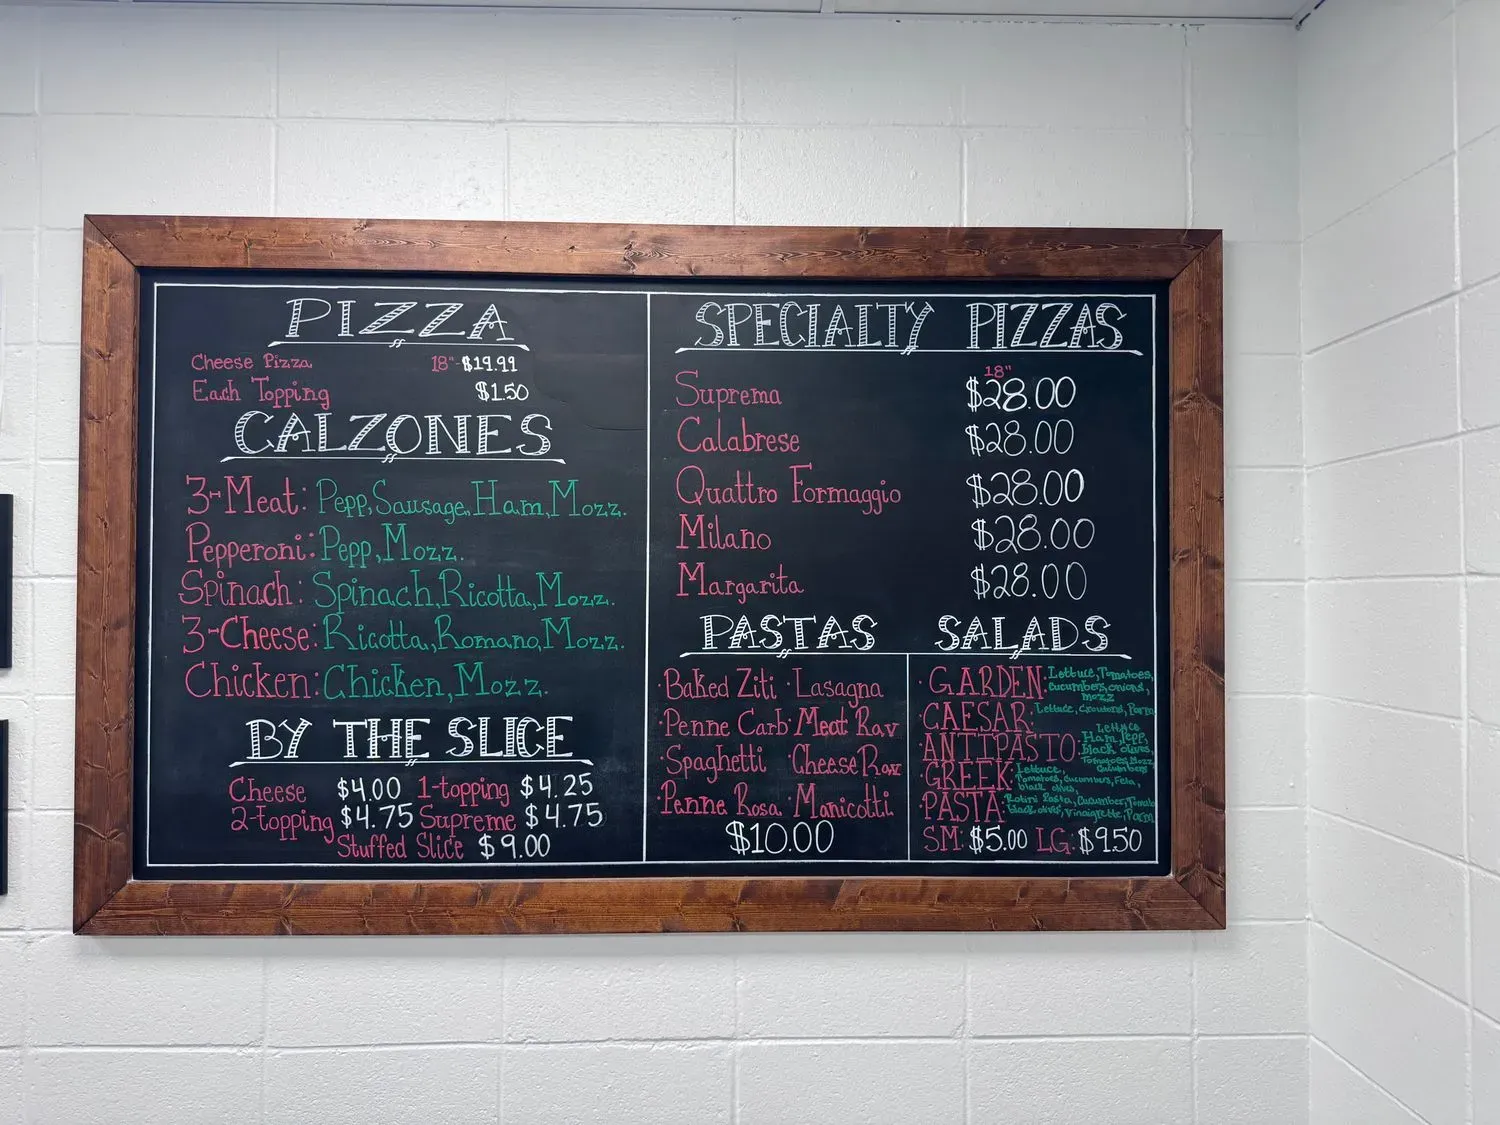 PIZZA
Cheese Pizza 18"-$19.99
Each Topping $1.50
CALZONES
3-Meat: Pepp, Sausage, Ham, Mozz.
Pepperoni: Pepp, Mozz.
Spinach: Spinach, Ricotta, Mozz.
3-Cheese: Ricotta, Romano, Mozz.
Chicken: Chicken, Mozz.
BY THE SLICE
Cheese $4.00 1-topping $4.25
2-topping $4.75 Supreme $4.75
Stuffed Slice $9.00
SPECIALTY PIZZAS
18"
Suprema $28.00
Calabrese $28.00
Quattro Formaggio $28.00
Milano $28.00
Margarita $28.00
PASTAS
·Baked Ziti ·Lasagna
·Penne Carb ·Meat Rav
·Spaghetti ·Cheese Rav
·Penne Rosa ·Manicotti
$10.00
SALADS
·GARDEN: Lettuce, Tomatoes,
Cucumbers, onions,
mozz
·CAESAR: Lettuce, Croutons, Parm
·ANTIPASTO: Lettuce
Ham, Pepp,
black olives,
Tomatoes, Mozz
Cucumbers
·GREEK: Lettuce,
Tomatoes, Cucumbers, Feta,
black olives,
·PASTA: Rotini Pasta, Cucumber, Tomato
black olives, Vinaigrette, Parm
SM: $5.00 LG: $9.50